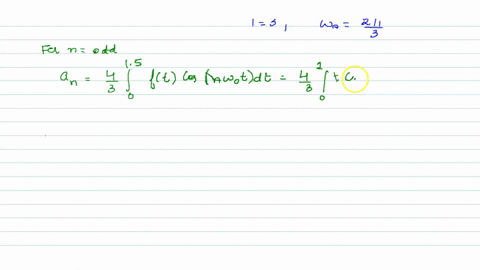 T = 3, ω₀ = 2π/3
For n = odd
aₙ = 4/3 ∫₀^1.5 f(t) Cos (nω₀t) dt = 4/3 ∫₀^1 t C